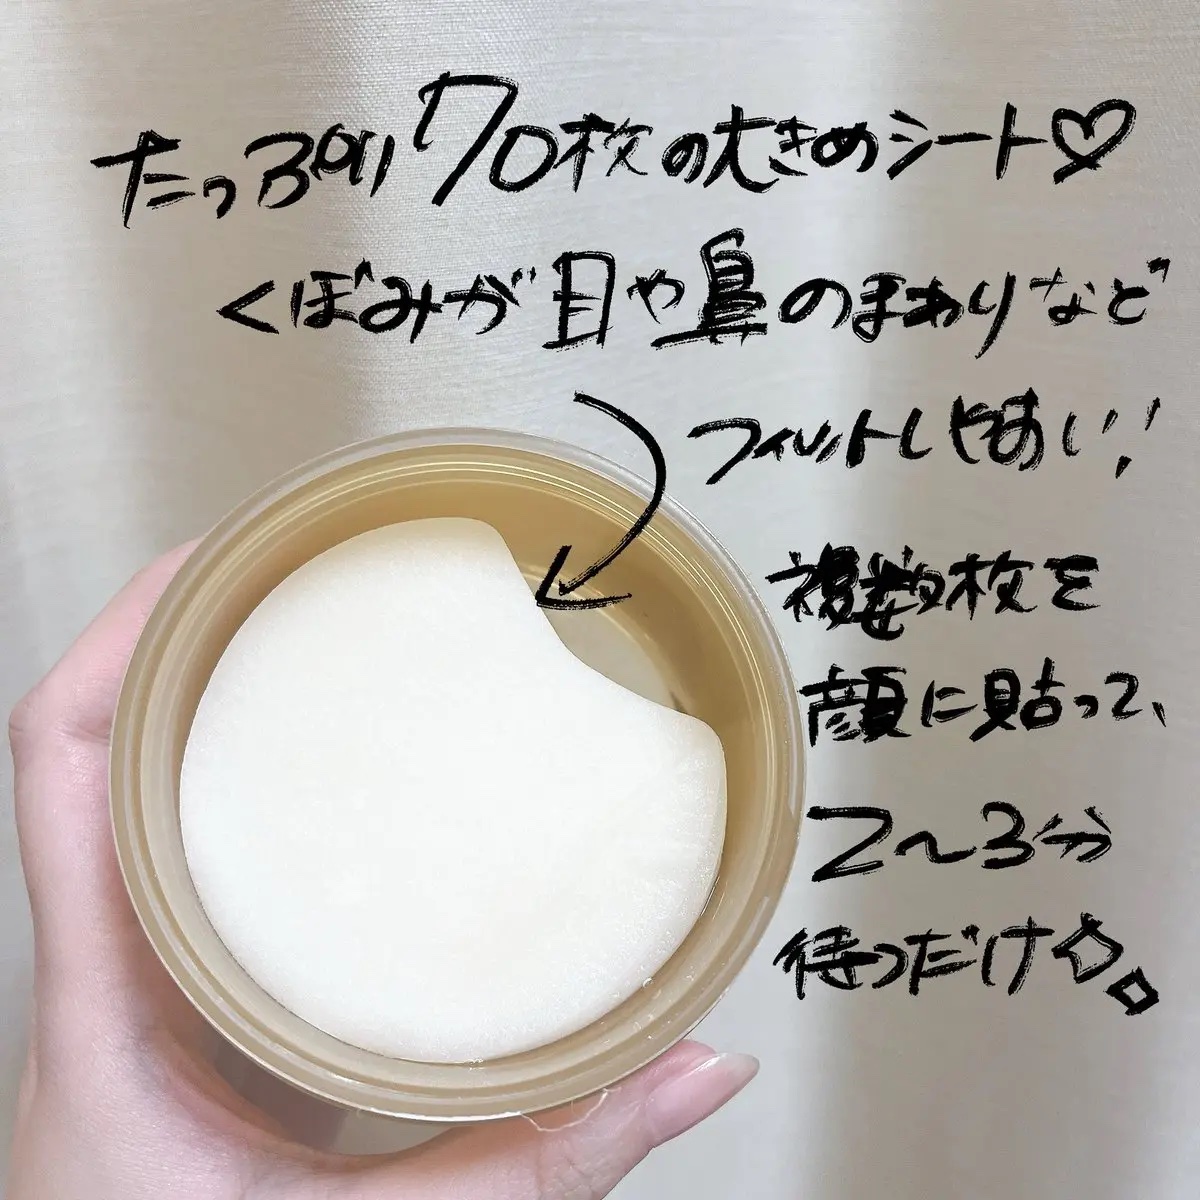 たっぷり70枚の大きめシート♡
くぼみが目や鼻のまわりなど
フィットしやすい!
複数枚を
顔に貼って、
2〜3分
待つだけ